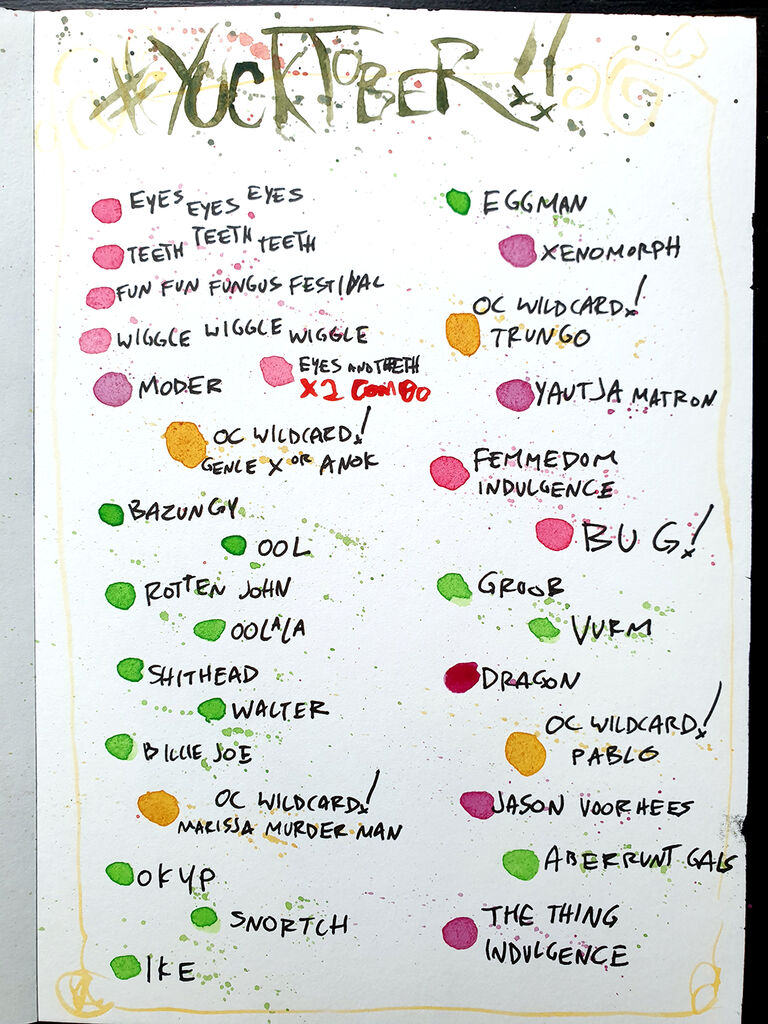 #YUCKTOBER!!
EYES EYES EYES
TEETH TEETH TEETH
FUN FUN FUNGUS FESTIVAL
WIGGLE WIGGLE WIGGLE
MODER
EYES AND TEETH
X2 COMBO
OC WILDCARD!
GENLE X OR ANOK
BAZUNGY
OOL
ROTTEN JOHN
OOLALA
SHITHEAD
WALTER
BILLIE JOE
OC WILDCARD!
MARISSA MURDER MAN
OKYP
SNORTCH
IKE
EGGMAN
XENOMORPH
OC WILDCARD!
TRUNGO
YAUTJA MATRON
FEMMEDOM
INDULGENCE
BUG!
GROOB
VURM
DRAGON
OC WILDCARD!
PABLO
JASON VOORHEES
ABERRUNT GALS
THE THING
INDULGENCE